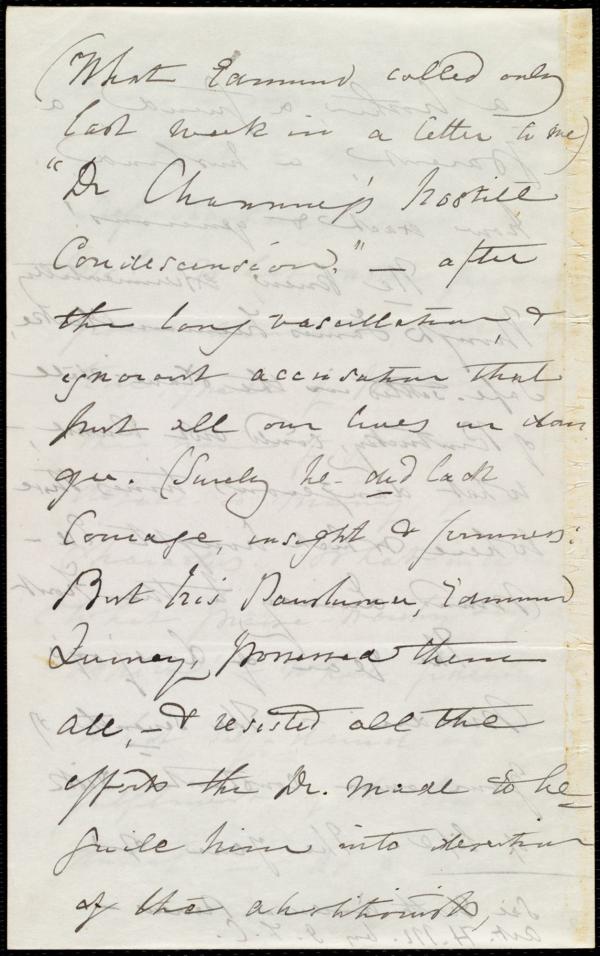 (What Edmund called only
last week in a letter to me)
"Dr Channing's hostile
Condescension." — after
the long vascillation, &
ignorant accusation that
put all our lives in dan
ger. (Surely he did lack
Courage, insight & firmness:
But his Parishioner, Edmund
Quincy, possessed them
all, — & resisted all the
efforts the Dr. made to be=
guile him into desertion
of the abolitionists,